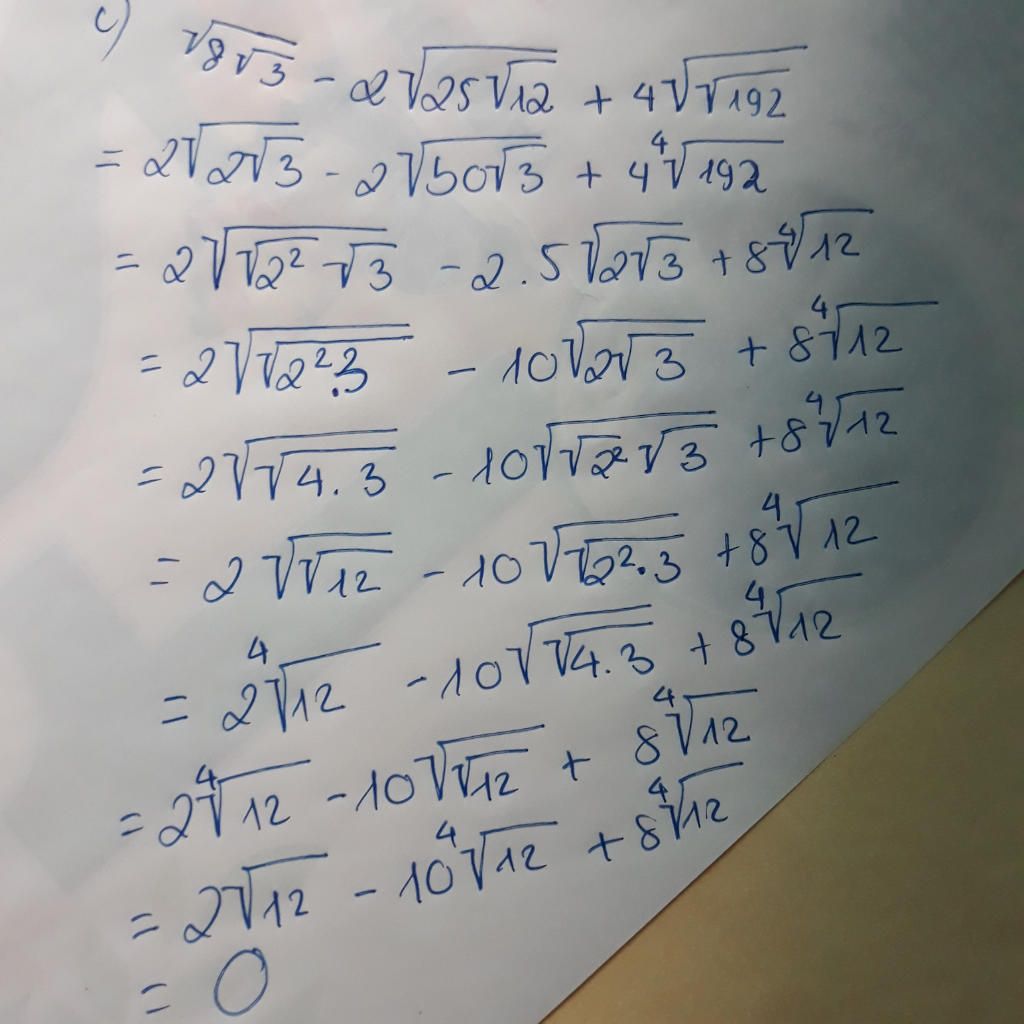 c) √(8√3) - 2√(25√12) + 4√(√192)
= 2√(2√3) - 2√(50√3) + 4⁴√192
= 2√(√2² √3) - 2.5√(2√3) + 8⁴√12
= 2√(√(2².3)) - 10√(2√3) + 8⁴√12
= 2√(√(4.3)) - 10√(√2² √3) + 8⁴√12
= 2√(√12) - 10√(√(2².3)) + 8⁴√12
= 2⁴√12 - 10√(√(4.3)) + 8⁴√12
= 2⁴√12 - 10√(√12) + 8⁴√12
= 2√12 - 10⁴√12 + 8⁴√12
= 0